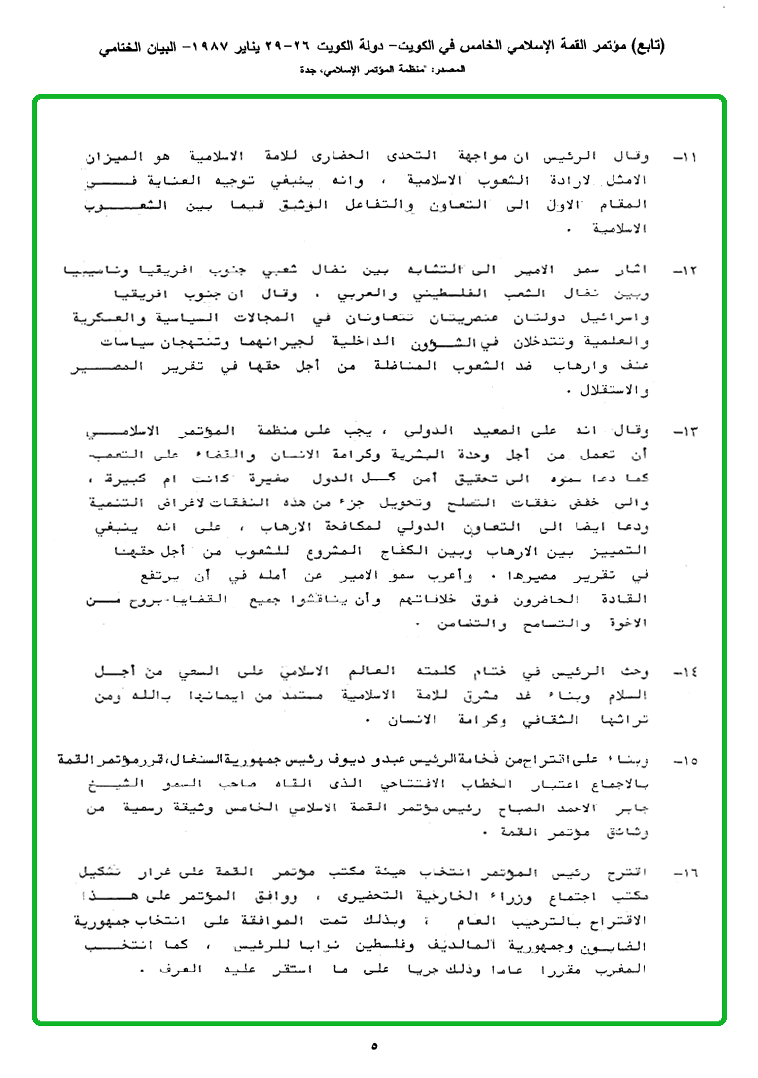 (تابع) مؤتمر القمة الإسلامي الخامس في الكويت- دولة الكويت ٢٦-٢٩ يناير ١٩٨٧- البيان الختامي
المصدر: "منظمة المؤتمر الإسلامي، جدة
١١- وقال الرئيس ان مواجهة التحدى الحضارى للامة الاسلامية هو الميزان
الامثل لارادة الشعوب الاسلامية ، وانه ينبغي توجيه العناية فـــي
المقام الاول الى التعاون والتفاعل الوثيق فيما بين الشعــــوب
الاسلامية .
١٢- اشار سمو الامير الى التشابه بين نضال شعبي جنوب افريقيا وناميبيا
وبين نضال الشعب الفلسطيني والعربي . وقال ان جنوب افريقيا
واسرائيل دولتان عنصريتان تتعاونان في المجالات السياسية والعسكرية
والعلمية وتتدخلان في الشؤون الداخلية لجيرانهما وتنتهجان سياسات
عنف وارهاب ضد الشعوب المناضلة من أجل حقها في تقرير المصـــير
والاستقلال .
١٣- وقال انه على الصعيد الدولى ، يجب على منظمة المؤتمر الاسلامـــي
أن تعمل من أجل وحدة البشرية وكرامة الانسان والقضاء على التعصب-
كما دعا سموه الى تحقيق أمن كـل الدول صغيرة كانت ام كبيرة ،
والى خفض نفقات التسلح وتحويل جزء من هذه النفقات لاغراض التنمية
ودعا ايضا الى التعاون الدولي لمكافحة الارهاب ، على انه ينبغي
التمييز بين الارهاب وبين الكفاح المشروع للشعوب من أجل حقهنا
في تقرير مصيرها . وأعرب سمو الامير عن أمله في أن يرتفع
القادة الحاضرون فوق خلافاتهم وأن يناقشوا جميع القضايا بروح مـــن
الاخوة والتسامح والتضامن .
١٤- وحث الرئيس في ختام كلمته العالم الاسلامي على السعي من أجـــل
السلام وبناء غد مشرق للامة الاسلامية مستمد من ايمانها بالله ومن
تراثها الثقافي وكرامة الانسان .
١٥- وبناء على اقتراح من فخامة الرئيس عبدو ديوف رئيس جمهورية السنغال، قرر مؤتمر القمة
بالاجماع اعتبار الخطاب الافتتاحي الذى القاه صاحب السمو الشيـــخ
جابر الاحمد الصباح رئيس مؤتمر القمة الاسلامي الخامس وثيقة رسمية من
وثائق مؤتمر القمة .
١٦- اقترح رئيس المؤتمر انتخاب هيئة مكتب مؤتمر القمة على غرار تشكيل
مكتب اجتماع وزراء الخارجية التحضيرى ، ووافق المؤتمر على هـــذا
الاقتراح بالترحيب العام ؛ وبذلك تمت الموافقة على انتخاب جمهورية
الغابـون وجمهورية المالديف وفلسطين نوابا للرئيس ، كما انتخـــب
المغرب مقررا عاما وذلك جريا على ما استقر عليه العرف .
٥